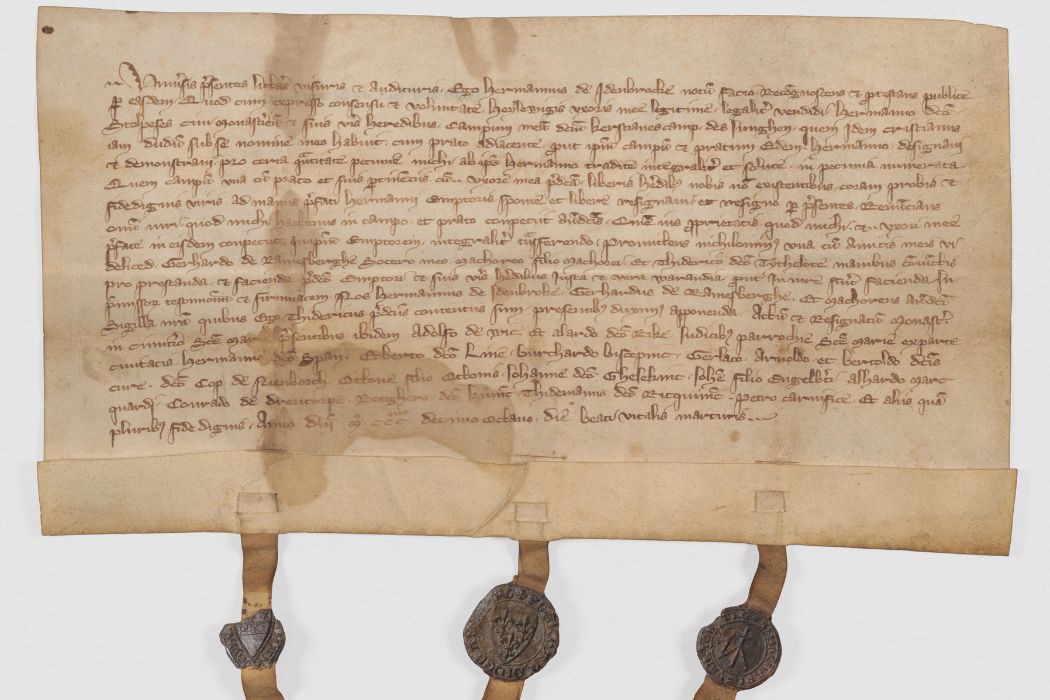 Universis presentes litteras visuris et audituris. Ego Hermannus de Idenbrocke notum facio. Recognoscens et protestans publice
per easdem. Quod cum expresso consensu et voluntate Heylewigis uxoris mee legitime. legaliter vendidi. Hermanno dco
civi Monasteriensi et suis veris heredibus. Campum meum dictum kerstianescamp. quem idem cristianus
iam dudum sub se nomine meo habuit. cum prato adiacente. prout ipsum campum et pratum Eidem Hermanno. designavi
et demonstravi. pro certa quantitate pecunie michi ab ipso Hermanno tradite integraliter et solute. in pecunia numerata
Quem campum una cum prato et suis pertinentiis cum uxore mea predicta. liberis heredibus nobis non existentibus. coram probis et
fidedignis viris ad manus prefati Hermanni Emptoris sponte et libere resignavi. et resigno per presentes. Renuncians
omni iuri. quod michi hactenus in campo. et prato conpeciit antedictis. Omne ius proprietatis quod michi. et uxori mee
prefate in eisdem conpeciit in ipsum Emptorem. integraliter transferendo. Promittens nichilominus una cum amicis meis vi
delicet. Gerhardo de Ramesberghe Socero meo Machorio filio Machorii. Et Thiderico dicto Tythelote manibus coniunctis
pro prestanda. et facienda predicto Emptori. et suis veris heredibus iusta et vera warandia prout in iure fuerit facienda. In
premissorum testimonium et firmitatem. Nos Hermannus de Idenbroke. Gerhardus de Ramesberghe. Et Machorius antedicti
Sigilla nostra quibus Ego Thidericus predictus contentus sum presentibus duximus apponenda. Actum et Resignatum Monasterii
in cimiterio Sancte Marie presentibus ibidem Adolfo de Et alardo dicto Rike. Iudicibus parrochie Sancte Marie ex parte
civitatis. Hermanno dicto Span. Etberto dicto Line. burchardo biscopinc. Gerlaco. Arnoldo. et bertoldo dictis
cure. dicto Cop de Nienborch. Ottone filio Ottonis. Iohanne dicto Ghesekinc. Iohanne filio Engelberti. alhardo marc
quardi. Conrado de drencorpe. Rotghero dicto Thidemanno dicto Petro carnifice. Et aliis quam
pluribus fide dignis. Anno dni M. CCC. decimo Octavo. die beati vitalis martiris.